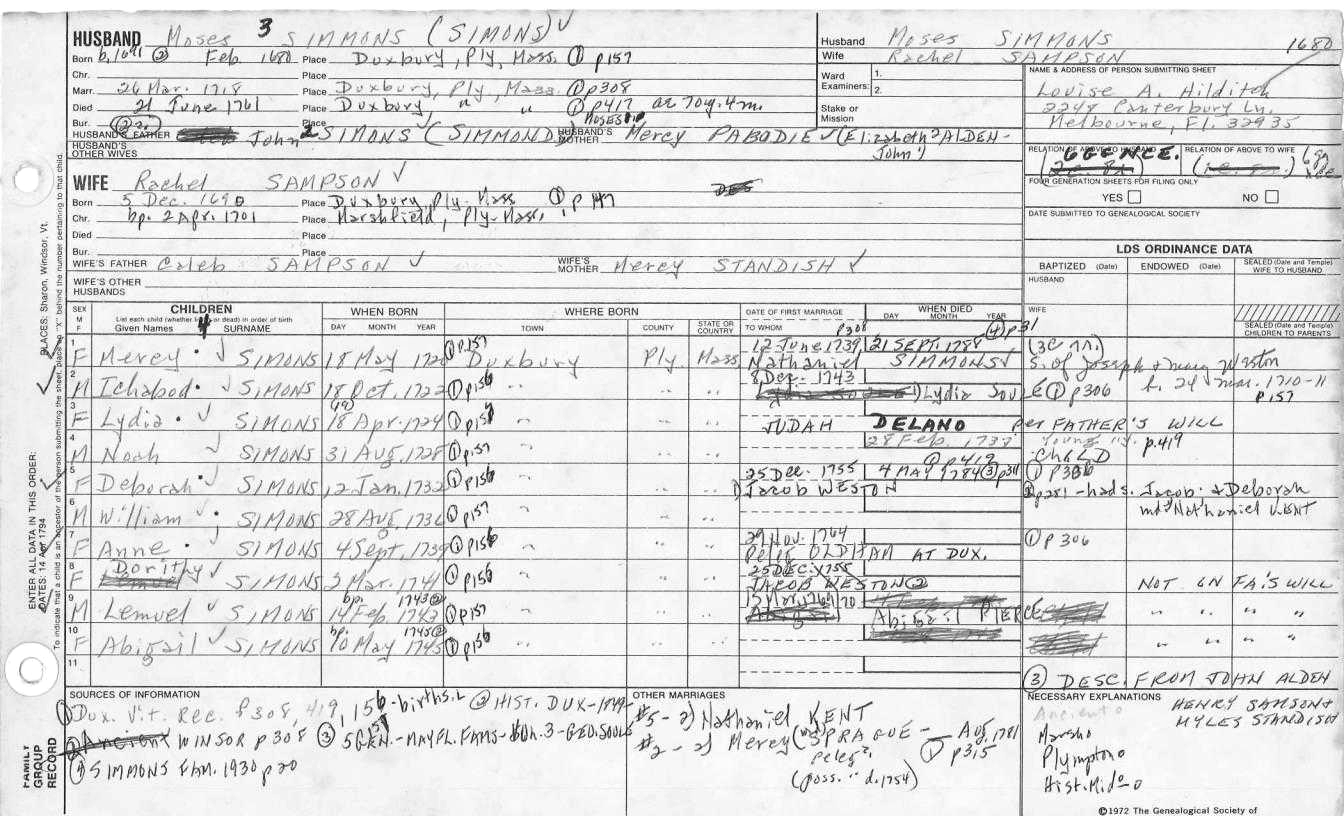 HUSBAND Moses 3 SIMMONS (SIMONS) ✓
Born b. 1691 ② Feb. 1680 Place Duxbury, Ply, Mass. ① p157
Chr. Place
Marr. 26 Mar. 1718 Place Duxbury, Ply, Mass. ① p308
Died 21 June 1761 Place Duxbury " " ① p417 ae 70y. 4m.
Bur. Place
HUSBAND'S FATHER John 2 SIMONS (SIMMONDS MOSES HUSBAND'S MOTHER Mercy PABODIE ✓ (Elizabeth 2 ALDEN-
John 1)
HUSBAND'S OTHER WIVES
WIFE Rachel SAMPSON ✓
Born 5 Dec. 1690 Place Duxbury, Ply-Mass ① p 147
Chr. bp. 2 Apr. 1701 Place Marshfield, Ply-Mass.
Died Place
Bur. Place
WIFE'S FATHER Caleb SAMPSON ✓ WIFE'S MOTHER Mercy STANDISH ✓
WIFE'S OTHER HUSBANDS
Husband Moses SIMMONS 1680
Wife Rachel SAMPSON
Ward Examiners: 1.
2.
Stake or Mission
NAME & ADDRESS OF PERSON SUBMITTING SHEET
Louise A. Hilditch
2248 Canterbury Ln.
Melbourne, Fl. 32935
RELATION OF ABOVE TO HUSBAND RELATION OF ABOVE TO WIFE
6GGENCE.
FOUR GENERATION SHEETS FOR FILING ONLY
YES NO
DATE SUBMITTED TO GENEALOGICAL SOCIETY
LDS ORDINANCE DATA
BAPTIZED (Date) ENDOWED (Date) SEALED (Date and Temple) WIFE TO HUSBAND
HUSBAND
WIFE
SEALED (Date and Temple) CHILDREN TO PARENTS
SEX M F CHILDREN WHEN BORN WHERE BORN DATE OF FIRST MARRIAGE WHEN DIED
List each child (whether living or dead) in order of birth
Given Names 4 SURNAME DAY MONTH YEAR TOWN COUNTY STATE OR COUNTRY TO WHOM p308 DAY MONTH YEAR ④ p31
1 F Mercy ✓ SIMONS 18 May 1720 ① p157 Duxbury Ply. Mass. 12 June 1739 21 SEPT. 1788
Nathaniel SIMMONS ✓ s. of Joseph & Mary Weston
b. 24 Mar. 1710-11
p157
2 M Ichabod ✓ SIMONS 18 Oct, 1722 ① p156 " " " 8 Dec. 1743
Lydia Soule ① p306
3 F Lydia ✓ SIMONS 18 Apr. 1724 ① p156 " " " JUDAH DELANO per FATHER'S WILL
4 M Noah SIMONS 31 Aug, 1728 ① p157 " " " 28 Feb. 1738 p.419
① p419 CHILD
5 F Deborah ✓ SIMONS 12 Jan. 1732 ① p156 " " " 25 Dec. 1755 4 MAY 1784 ③ p31 ① p306
1) Jacob WESTON p251 - had s. Jacob & Deborah
md Nathaniel KENT
6 M William SIMONS 28 Aug, 1736 ① p157 " " "
7 F Anne SIMONS 4 Sept, 1739 ① p156 " " " 29 Nov. 1764 ① p 306
Peleg OLDHAM AT DUX.
8 F Dorithy ✓ SIMONS 3 Mar. 1741 ① p156 " " " 25 DEC. 1755
JACOB WESTON NOT ON FA'S WILL
9 M Lemuel ✓ SIMONS bp. 1743 ② 14 Feb. 1743 ① p157 " " " 5 Mar. 1769/70
Abigail PIERCE " " " "
10 F Abigail ✓ SIMONS bp. 1745 ② 10 May 1745 ① p156 " " " " " "
11
③ DESC. FROM JOHN ALDEN
SOURCES OF INFORMATION
① Dux. Vit. Rec. p308, 419, 156 - births. ② HIST. DUX-1849-
WINSOR p 308 ③ 5GEN.-MAYFL. FAMS- VOL. 3-GEO. SOULE
④ SIMMONS FAM. 1930 p20
OTHER MARRIAGES
#5-2) Nathaniel KENT
#2-2) Mercy SPRAGUE - Aug. 1781
Peleg? ① p315
(poss. " d. 1754)
NECESSARY EXPLANATIONS
HENRY SAMSON &
MYLES STANDISH
Ancient o
Marsho
Plymptono
Hist. Mid o
©1972 The Genealogical Society of
ENTER ALL DATA IN THIS ORDER:
DATES: 14 Apr 1794
PLACES: Sharon, Windsor, Vt.
To indicate that a child is an ancestor of the person submitting the sheet, place an "X" behind the number pertaining to that child.
FAMILY GROUP RECORD